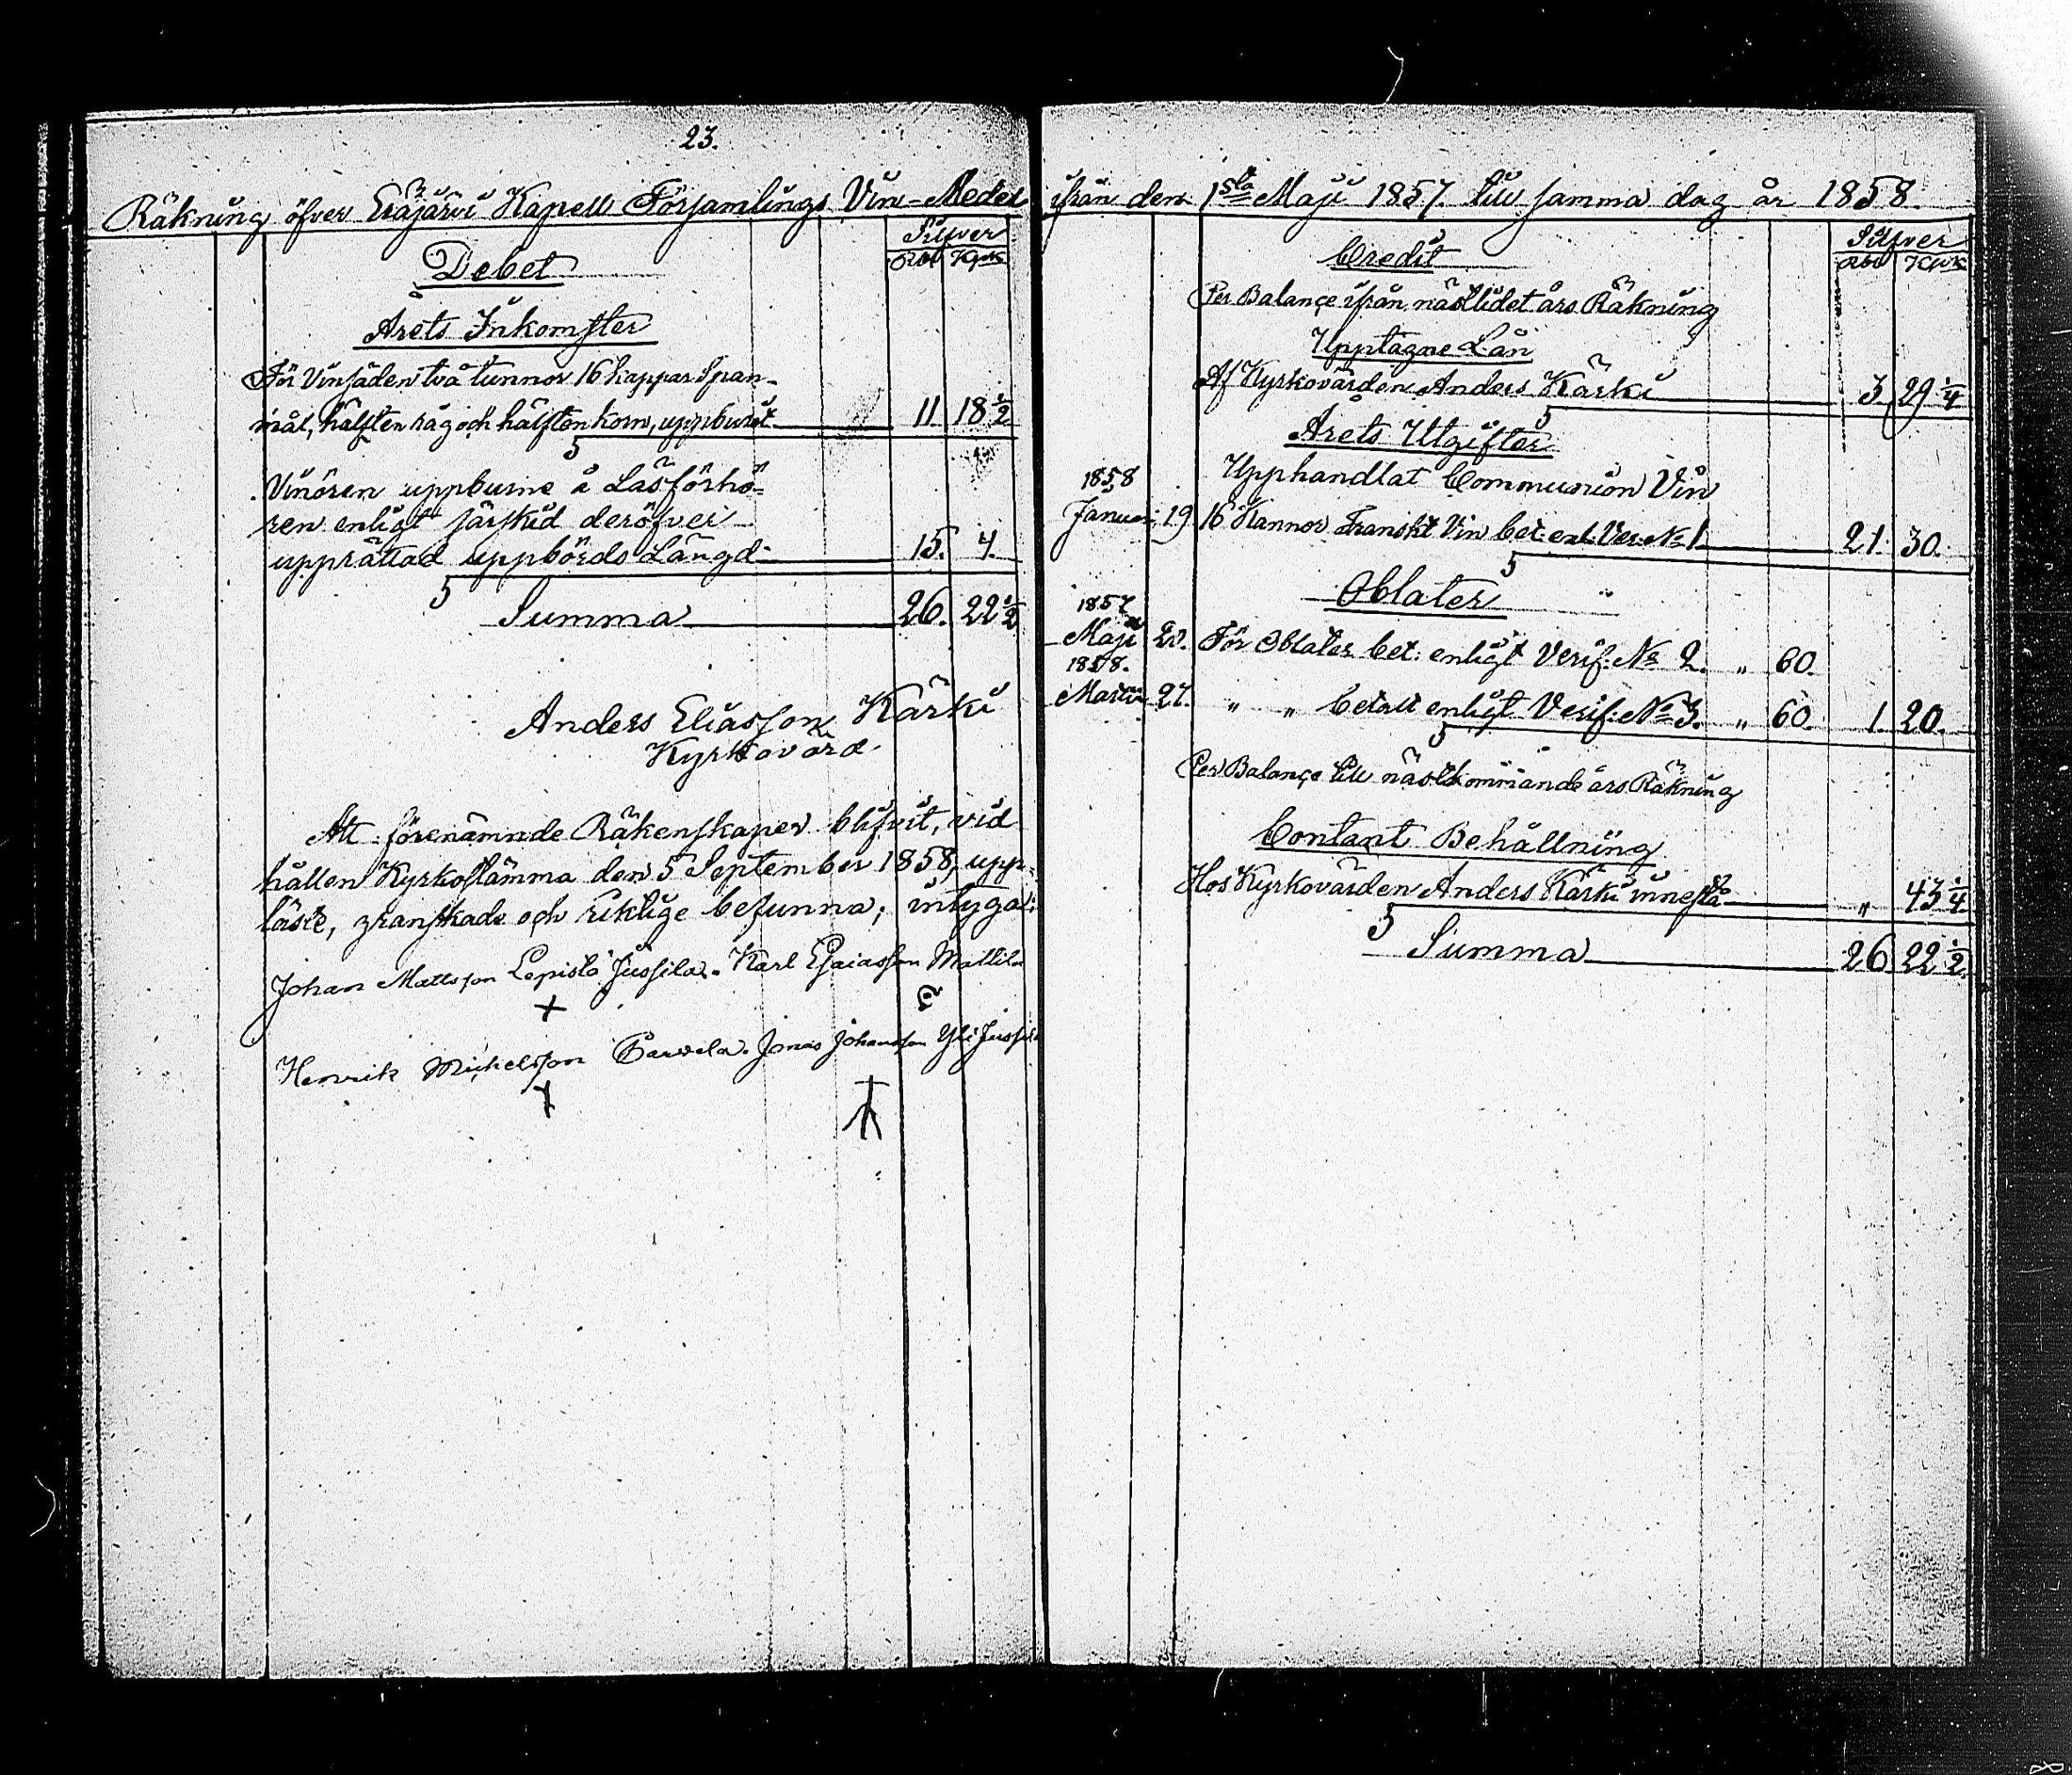 23.
Räkning öfver Eräjärvi Kapell Församlings Vin-Medel
Silfver
Rbl Kpk
Debet
Årets Inkomster
För Vinsäden två tunnor 16 kappar Span-
mål, hälften råg och hälften korn, uppburit 11 18 1/2
Vinören uppburne å Läsförhö-
ren enligt särskild deröfver
upprättad uppbörds Längd 15. 4.
Summa 26. 22 1/2
Anders Eliasson Kärki
Kyrkovärd
Att förenämnde Räkenskaper blifvit, vid
hållen Kyrkostämma den 5 September 1858, upp-
läste, granskade och riktige befunna; intyga:
Johan Mattsson Lepistö Jussila. Karl Esaiasson Mattila
Henrik Michelsson Parvela. Jonas Johansson Yli Jussila
ifrån den 1sta Maji 1857 till samma dag år 1858.
Silfver
Rbl Kpk
Credit
Per Balançe ifrån nästlidet års Räkning
Upptagne Lån
Af Kyrkovärden Anders Kärki 3. 29 1/4
Årets Utgifter
1858 Upphandlat Communion Vin
Januari 19 16 Kannor Franskt Vin bet: enl. Ver: No 1 21. 30.
Oblater
1857
Maji 20. För Oblater bet: enligt Verif: No 2. " 60.
1858.
Martii 27. " " betalt enligt Verif: No 3. " 60. 1. 20.
Per Balançe till nästkommande års Räkning
Contant Behållning
Hos Kyrkovärden Anders Kärki innestå " 43 1/4
Summa 26 22 1/2